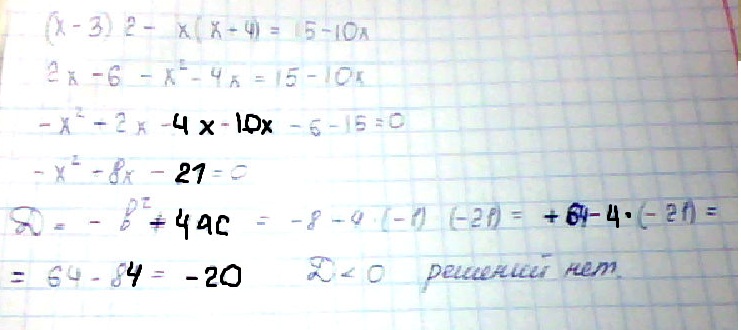 (x-3) 2 - x(x+4) = 15-10x
2x-6-x²-4x=15-10x
-x²+2x-4x-10x-6-15=0
-x²-8x-21=0
D = -b²+4ac = -8-4·(-1) (-21) = +64-4·(-21) =
= 64-84= -20 D<0 решений нет.